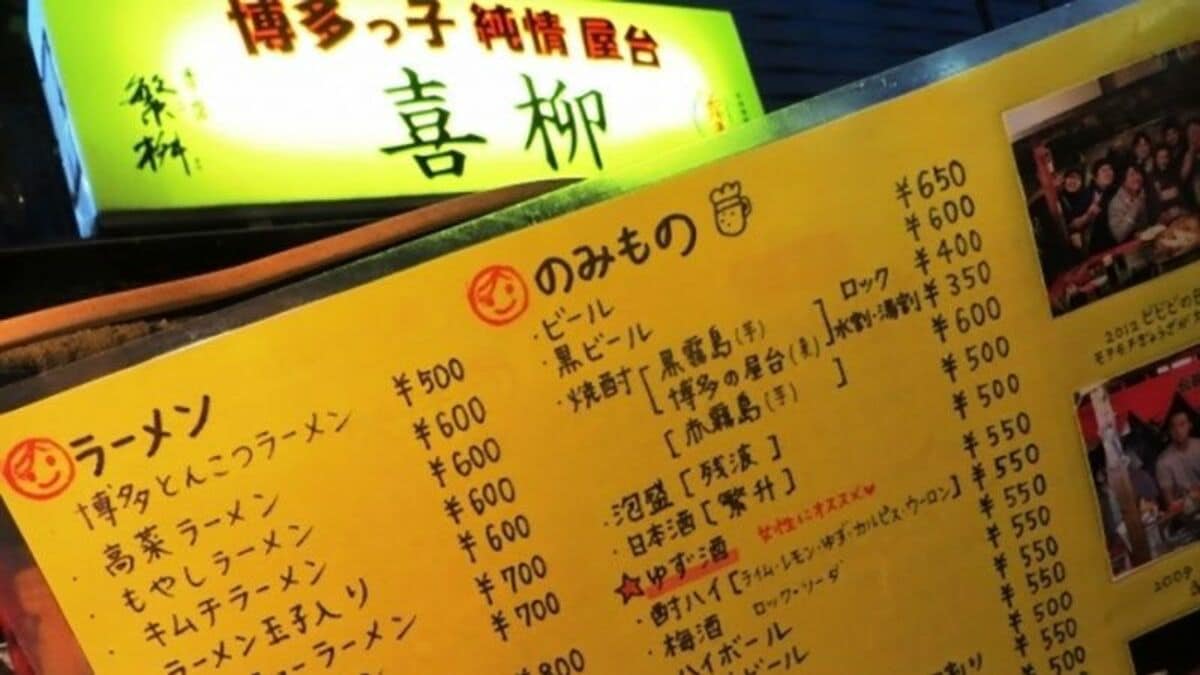 博多っ子 純情 屋台
繁桝
喜柳
ラーメン
・博多とんこつラーメン ¥500
・高菜ラーメン ¥600
・もやしラーメン ¥600
・キムチラーメン ¥600
ラーメン玉子入り ¥600
ーラーメン ¥700
¥700
¥800
のみもの
・ビール ¥650
・黒ビール ¥600
・焼酎[黒霧島(芋) ロック ¥400
博多の屋台(麦)]水割・湯割 ¥350
[赤霧島(芋)] ¥600
・泡盛[残波] ¥500
・日本酒[繁升] ¥500
★ゆず酒 女性にオススメ♥ ¥550
・酎ハイ[ライム・レモン・ゆず・カルピス・ウーロン] ¥550
・梅酒 ロック・ソーダ ¥550
ハイボール ¥550
ビール ¥550
¥550
¥500
¥550
¥500
2012
2009